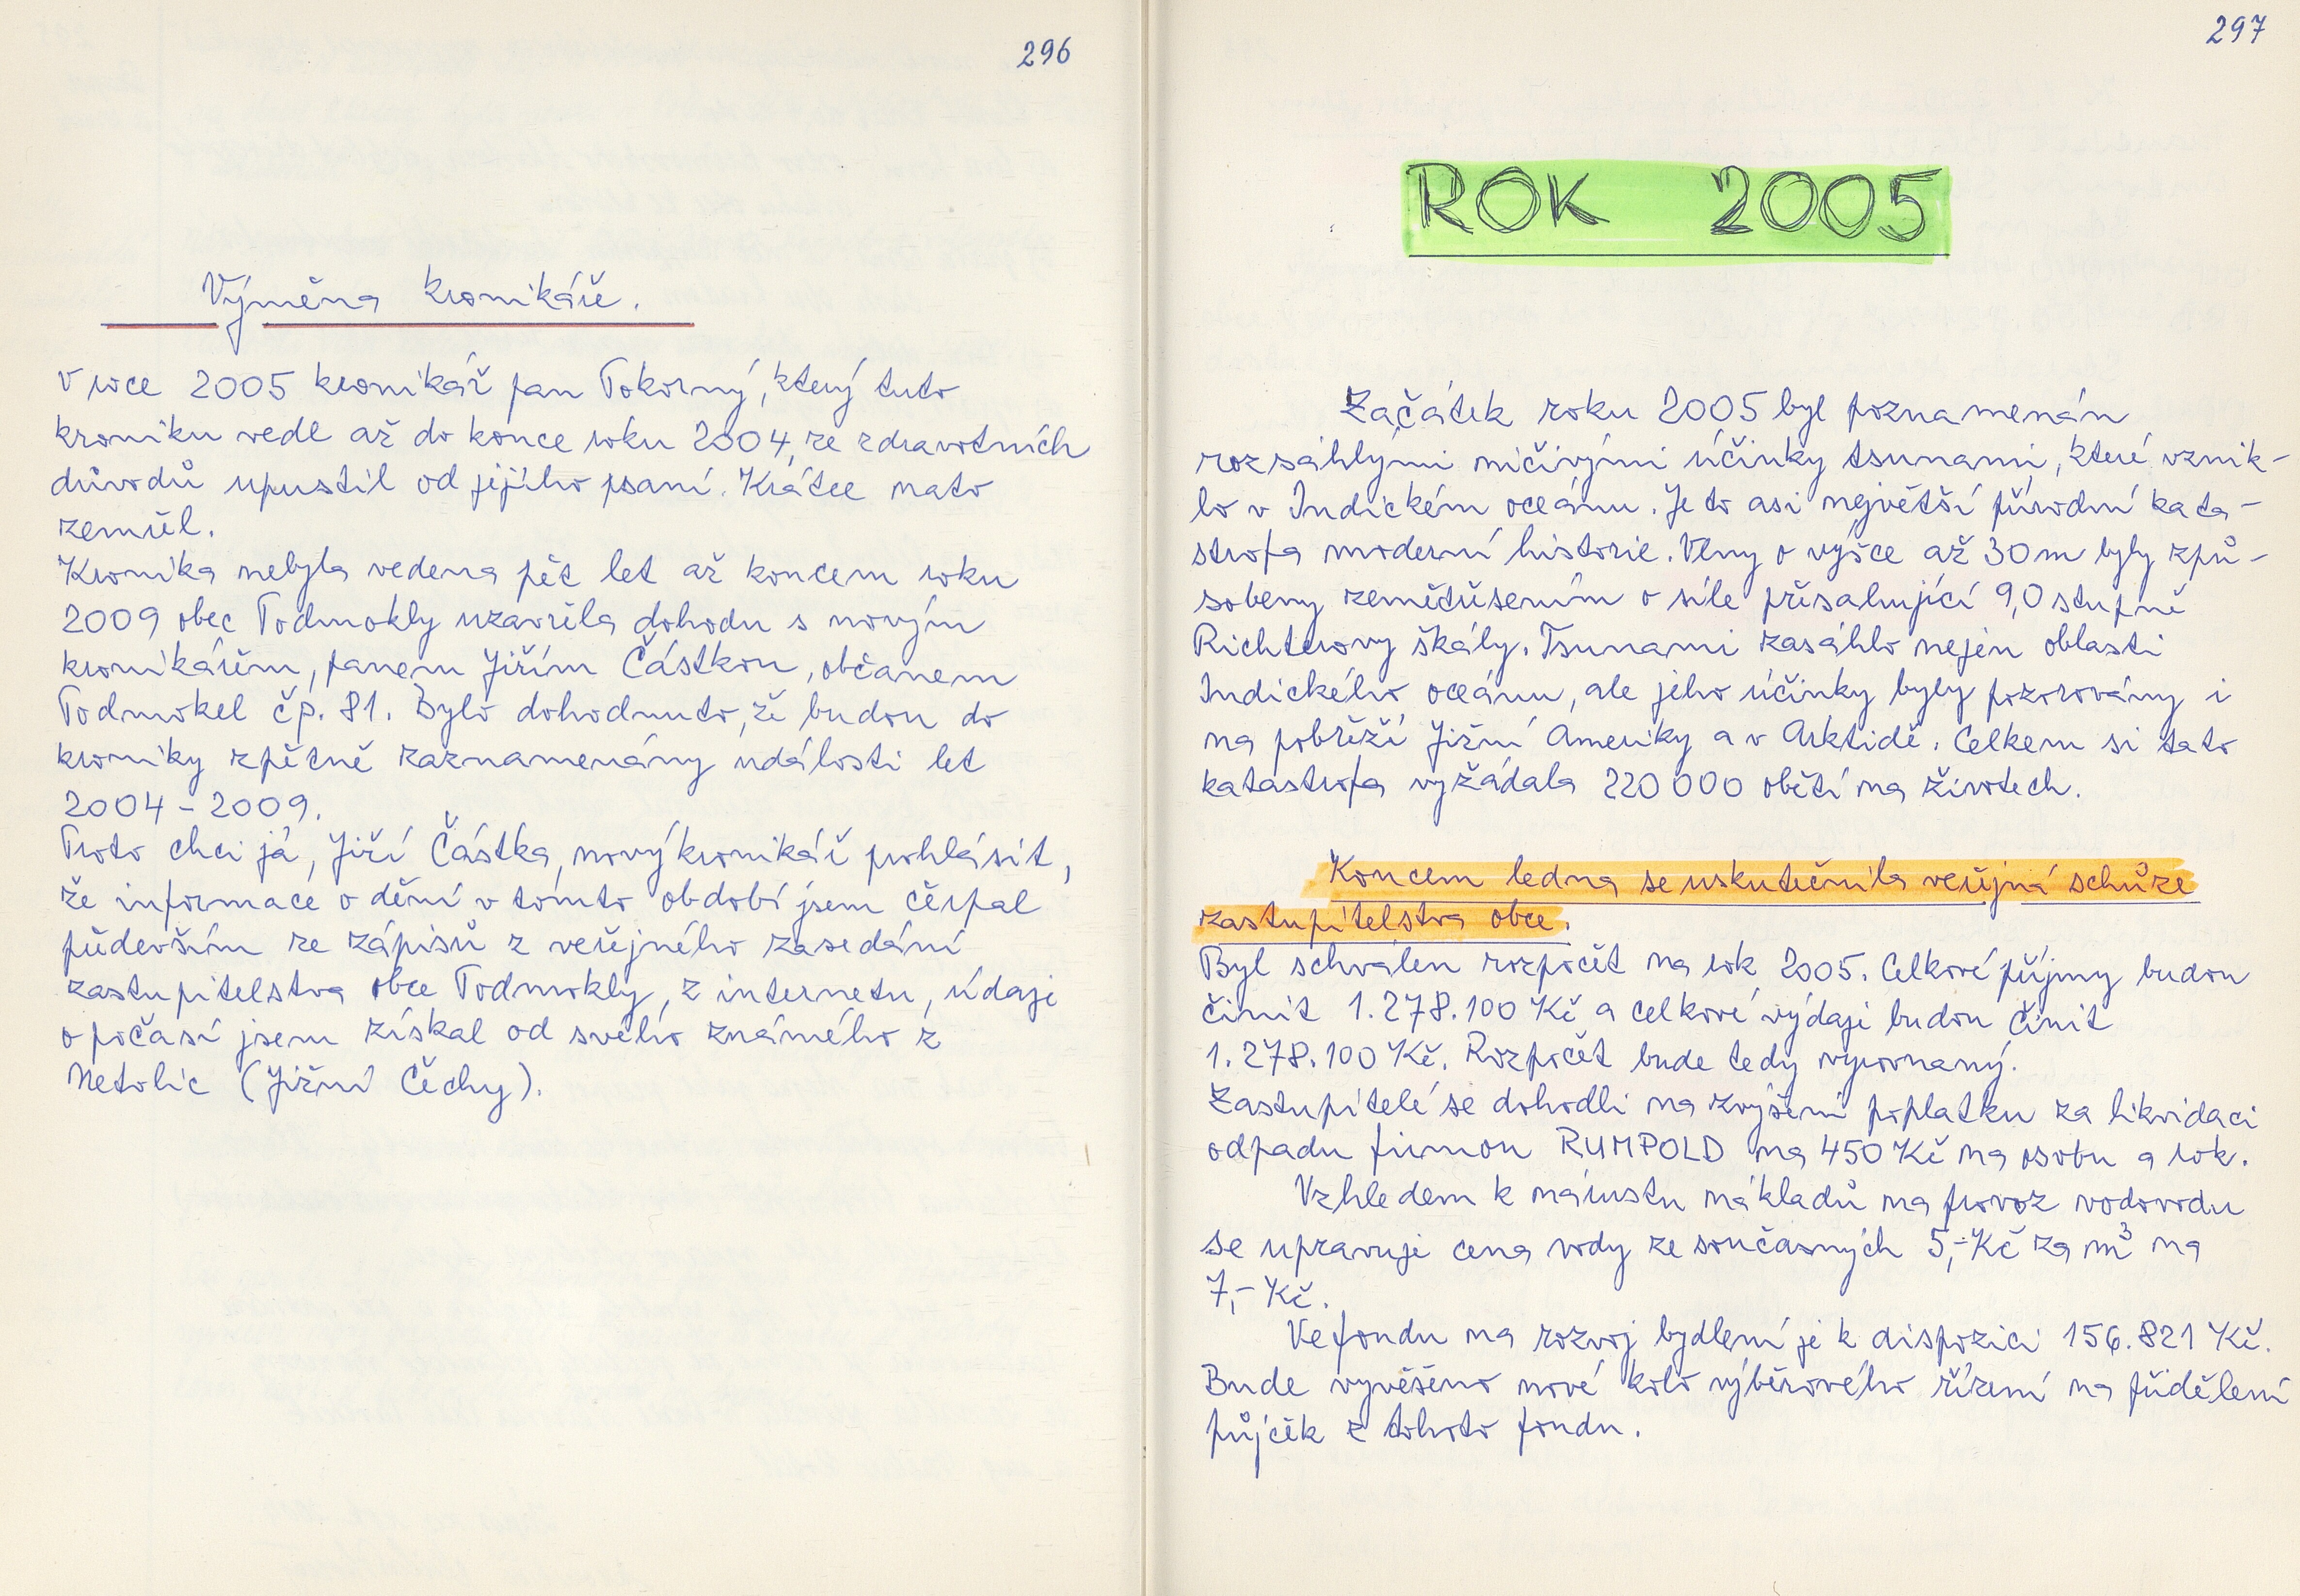 296
Výměna kronikáře.
V roce 2005 kronikář pan Pokorný, který tuto
kroniku vedl až do konce roku 2004, ze zdravotních
důvodů upustil od jejího psaní. Krátce nato
zemřel.
Kronika nebyla vedena pět let až koncem roku
2009 obec Podmokly uzavřela dohodu s novým
kronikářem, panem Jiřím Částkou, občanem
Podmokel čp. 81. Bylo dohodnuto, že budou do
kroniky zpětně zaznamenány události let
2004 - 2009.
Proto chci já, Jiří Částka, nový kronikář prohlásit,
že informace o dění v tomto období jsem čerpal
především ze zápisů z veřejného zasedání
zastupitelstva obce Podmokly, z internetu, údaje
o počasí jsem získal od svého známého z
Netolic (Jižní Čechy).
297
ROK 2005
Začátek roku 2005 byl poznamenán
rozsáhlými ničivými účinky tsunami, které vznik-
lo v Indickém oceánu. Je to asi největší přírodní kata-
strofa moderní historie. Vlny o výšce až 30 m byly způ-
sobeny zemětřesením o síle přesahující 9,0 stupně
Richterovy škály. Tsunami zasáhlo nejen oblasti
Indického oceánu, ale jeho účinky byly pozorovány i
na pobřeží Jižní Ameriky a v Arktidě. Celkem si tato
katastrofa vyžádala 220 000 obětí na životech.
Koncem ledna se uskutečnila veřejná schůze
zastupitelstva obce.
Byl schválen rozpočet na rok 2005. Celkové příjmy budou
činit 1.278.100 Kč a celkové výdaje budou činit
1.278.100 Kč. Rozpočet bude tedy vyrovnaný.
Zastupitelé se dohodli na zvýšení poplatku za likvidaci
odpadu firmou RUMPOLD na 450 Kč na osobu a rok.
Vzhledem k nárustu nákladů na provoz vodovodu
se upravuje cena vody ze současných 5,- Kč za m³ na
7,- Kč.
Ve fondu na rozvoj bydlení je k dispozici 156.821 Kč.
Bude vyvěšeno nové kolo výběrového řízení na přidělení
půjček z tohoto fondu.